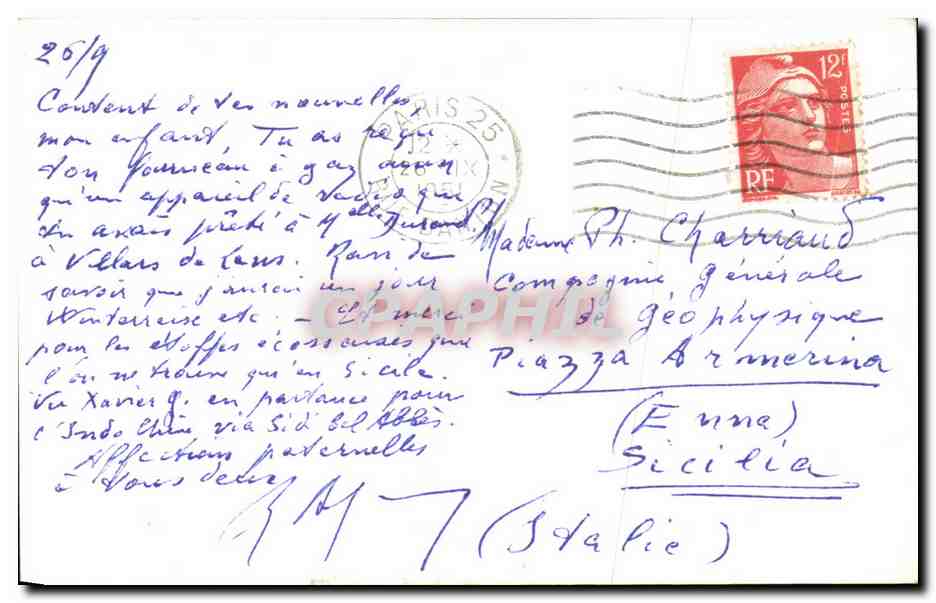 26/9
Content de tes nouvelles,
mon enfant, Tu as reçu
ton fourneau à gaz ainsi
qu'un appareil de radio que
tu avais prêté à Melle Durand
à Villars de Lans. Ravi de
savoir que j'aurai un jour
Winterreise etc. – Et merci
pour les étoffes écossaises que
l'on ne trouve qu'en Sicile.
Vu Xavier G. en partance pour
l'Indo Chine via Sidi Bel Abbès.
Affections paternelles
à vous deux
PARIS 25
12 H
26 IX
1951
12F
POSTES
RF
Madame Ph. Charriaud
Compagnie Générale
de Géophysique
Piazza Armerina
(Enna)
Sicilia
(Italie)
CPAPHIL